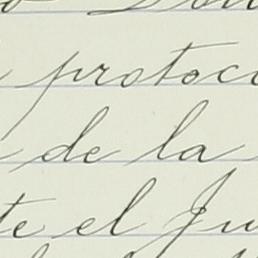 protoco
de la
te el Ju